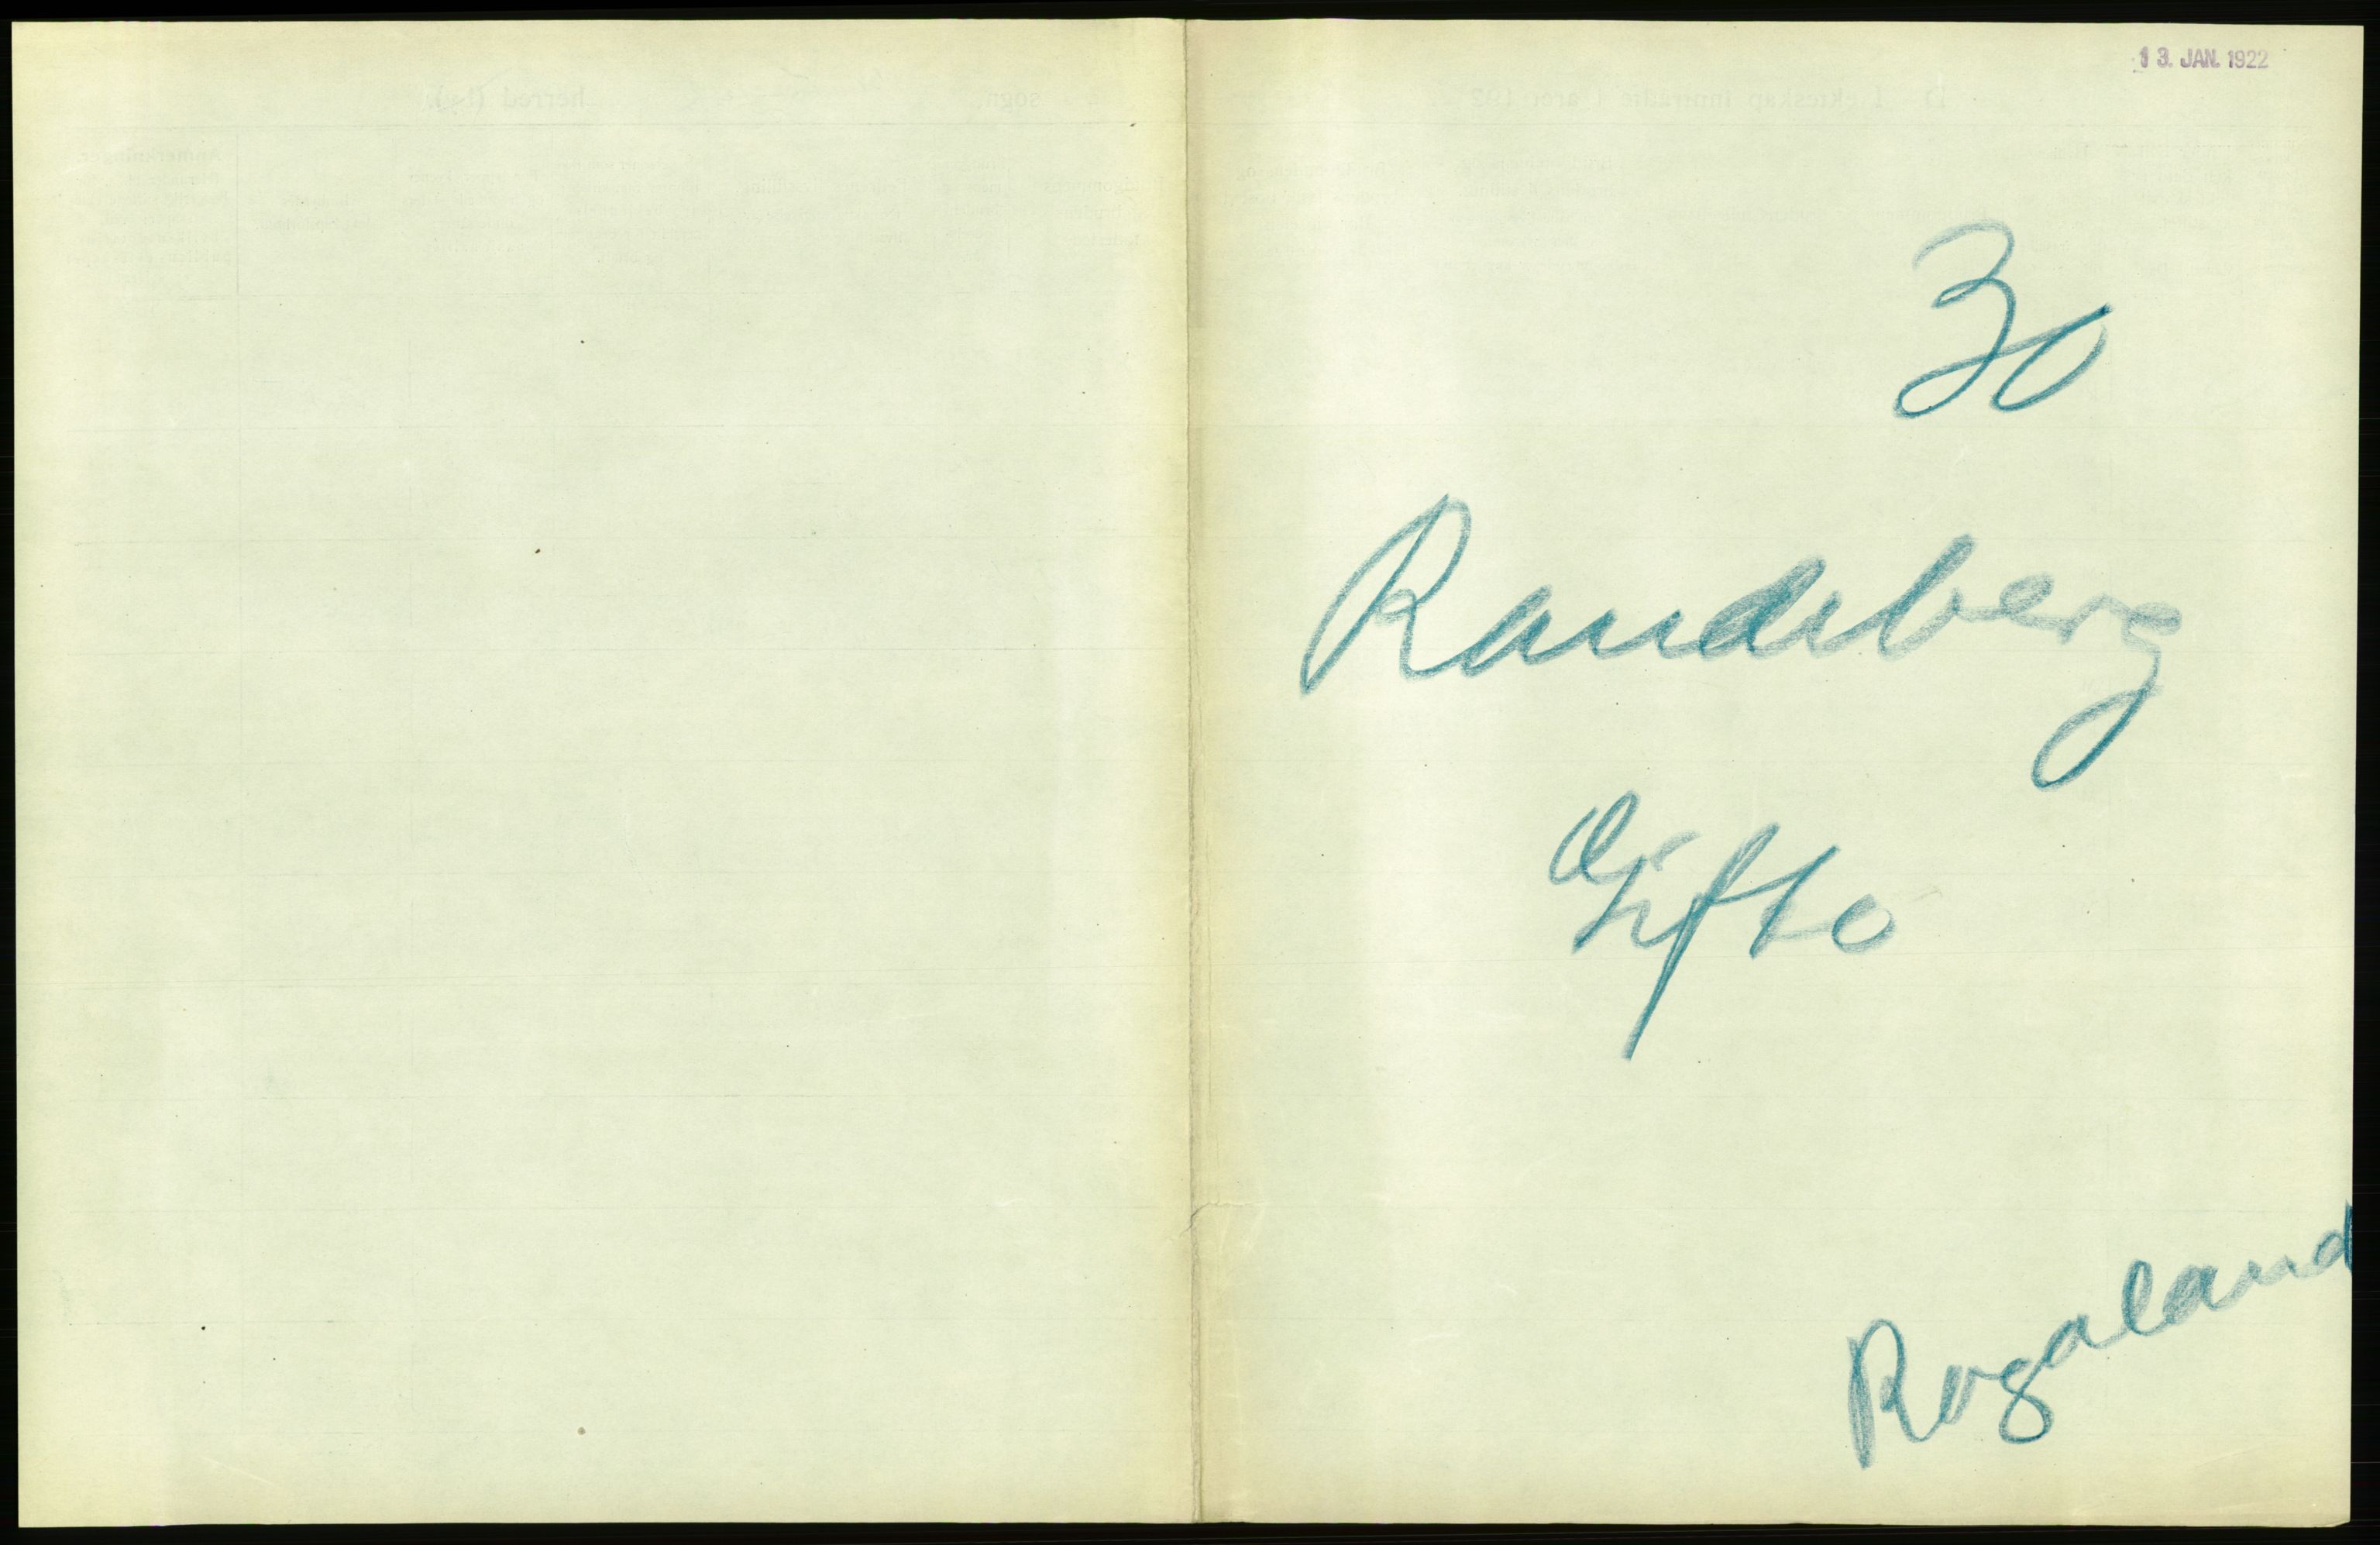 13. JAN. 1922
30
Randeberg
Gifte
Rogaland